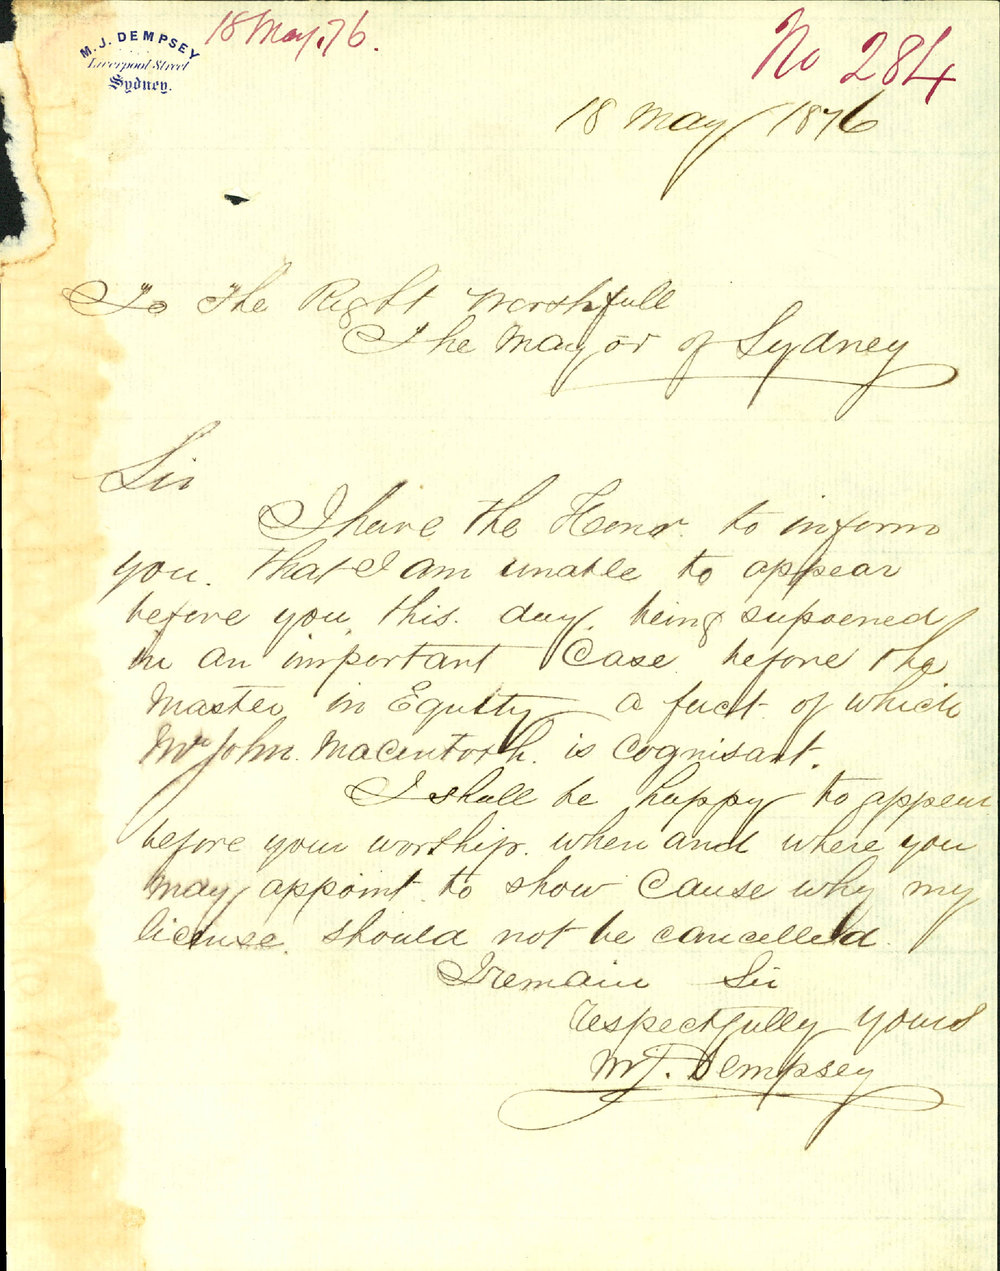 M. J. DEMPSEY
Liverpool Street
Sydney.
18 May. 76.
No 284
18 May 1876
To The Right Worshfull
The Mayor of Sydney
Sir
I have the Honor to inform
you. that I am unable to appear
before you this. day. being supoened
in an important Case before the
Master in Equity a fact of which
Mr John. Macintosh. is Cognisant.
I shall be happy to appear
before your worship. when and where you
may appoint to show Cause why my
license. should not be cancelled.
I remain Sir
respectfully yours
M J. Dempsey